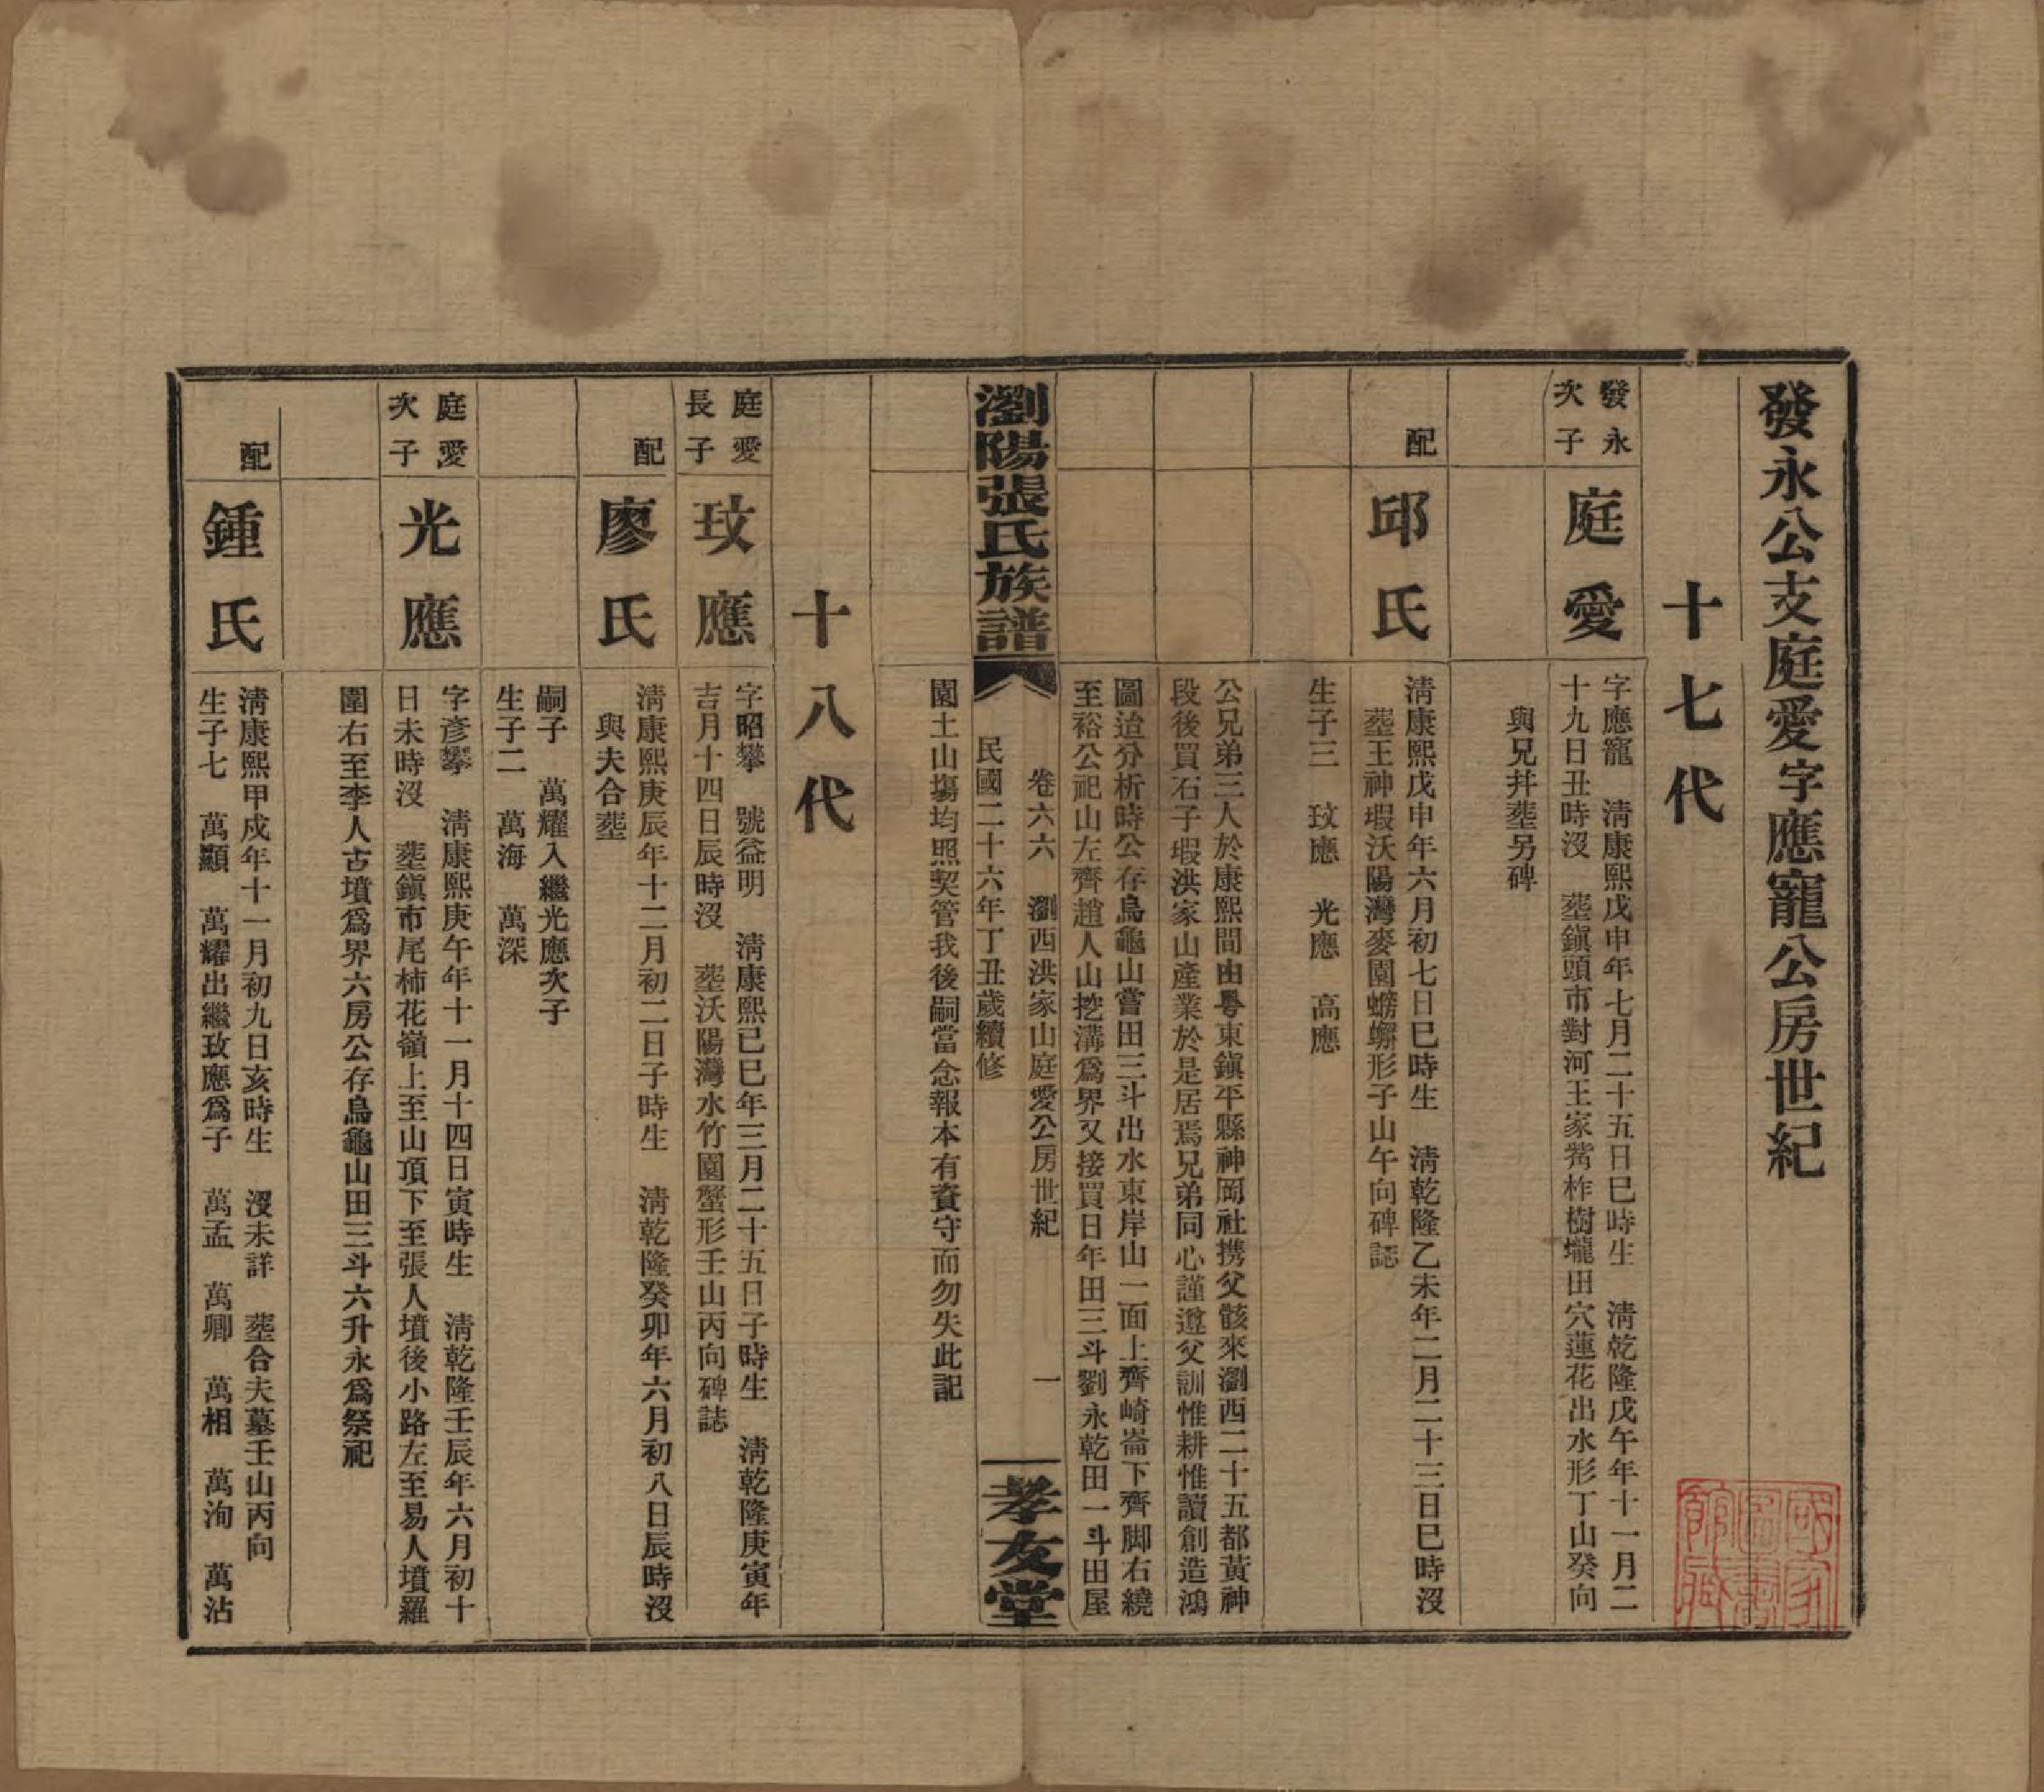 發永公支庭愛字應寵公房世紀
十七代
發永
次子
庭愛
字應寵　清康熙戊申年七月二十五日巳時生　清乾隆戊午年十一月二
十九日丑時沒　塟鎭頭市對河王家觜柞樹壠田穴蓮花出水形丁山癸向
與兄幷塟另碑
配
邱氏
淸康熙戊申年六月初七日巳時生　淸乾隆乙未年二月二十三日巳時沒
塟王神塅沃陽灣麥園螃蠏形子山午向碑誌
生子三　玟應　光應　高應
公兄弟三人於康熙間由粵東鎭平縣神岡社携父骸來瀏西二十五都黃神
段後買石子塅洪家山產業於是居焉兄弟同心謹遵父訓惟耕惟讀創造鴻
圖迨分析時公存烏龜山嘗田三斗出水東岸山一面上齊崎崙下齊脚右繞
至裕公祀山左齊趙人山挖溝爲界又接買日年田三斗劉永乾田一斗田屋
瀏陽張氏族譜
卷六六　瀏西洪家山庭愛公房世紀　一
民國二十六年丁丑歲續修
孝友堂
園土山塲均照契管我後嗣當念報本有資守而勿失此記
十八代
庭愛
長子
玟應
字昭攀　號益明　淸康熙己巳年三月二十五日子時生　淸乾隆庚寅年
吉月十四日辰時沒　塟沃陽灣水竹園蟹形壬山丙向碑誌
配
廖氏
淸康熙庚辰年十二月初二日子時生　淸乾隆癸卯年六月初八日辰時沒
與夫合塟
嗣子　萬耀入繼光應次子
生子二　萬海　萬深
庭愛
次子
光應
字彥攀　淸康熙庚午年十一月十四日寅時生　淸乾隆壬辰年六月初十
日未時沒　塟鎭市尾柿花嶺上至山頂下至張人墳後小路左至易人墳羅
圍右至李人古墳爲界六房公存烏龜山田三斗六升永爲祭祀
配
鍾氏
淸康熙甲戍年十一月初九日亥時生　沒未詳　塟合夫墓壬山丙向
生子七　萬顯　萬耀出繼玟應爲子　萬孟　萬卿　萬相　萬洵　萬沾